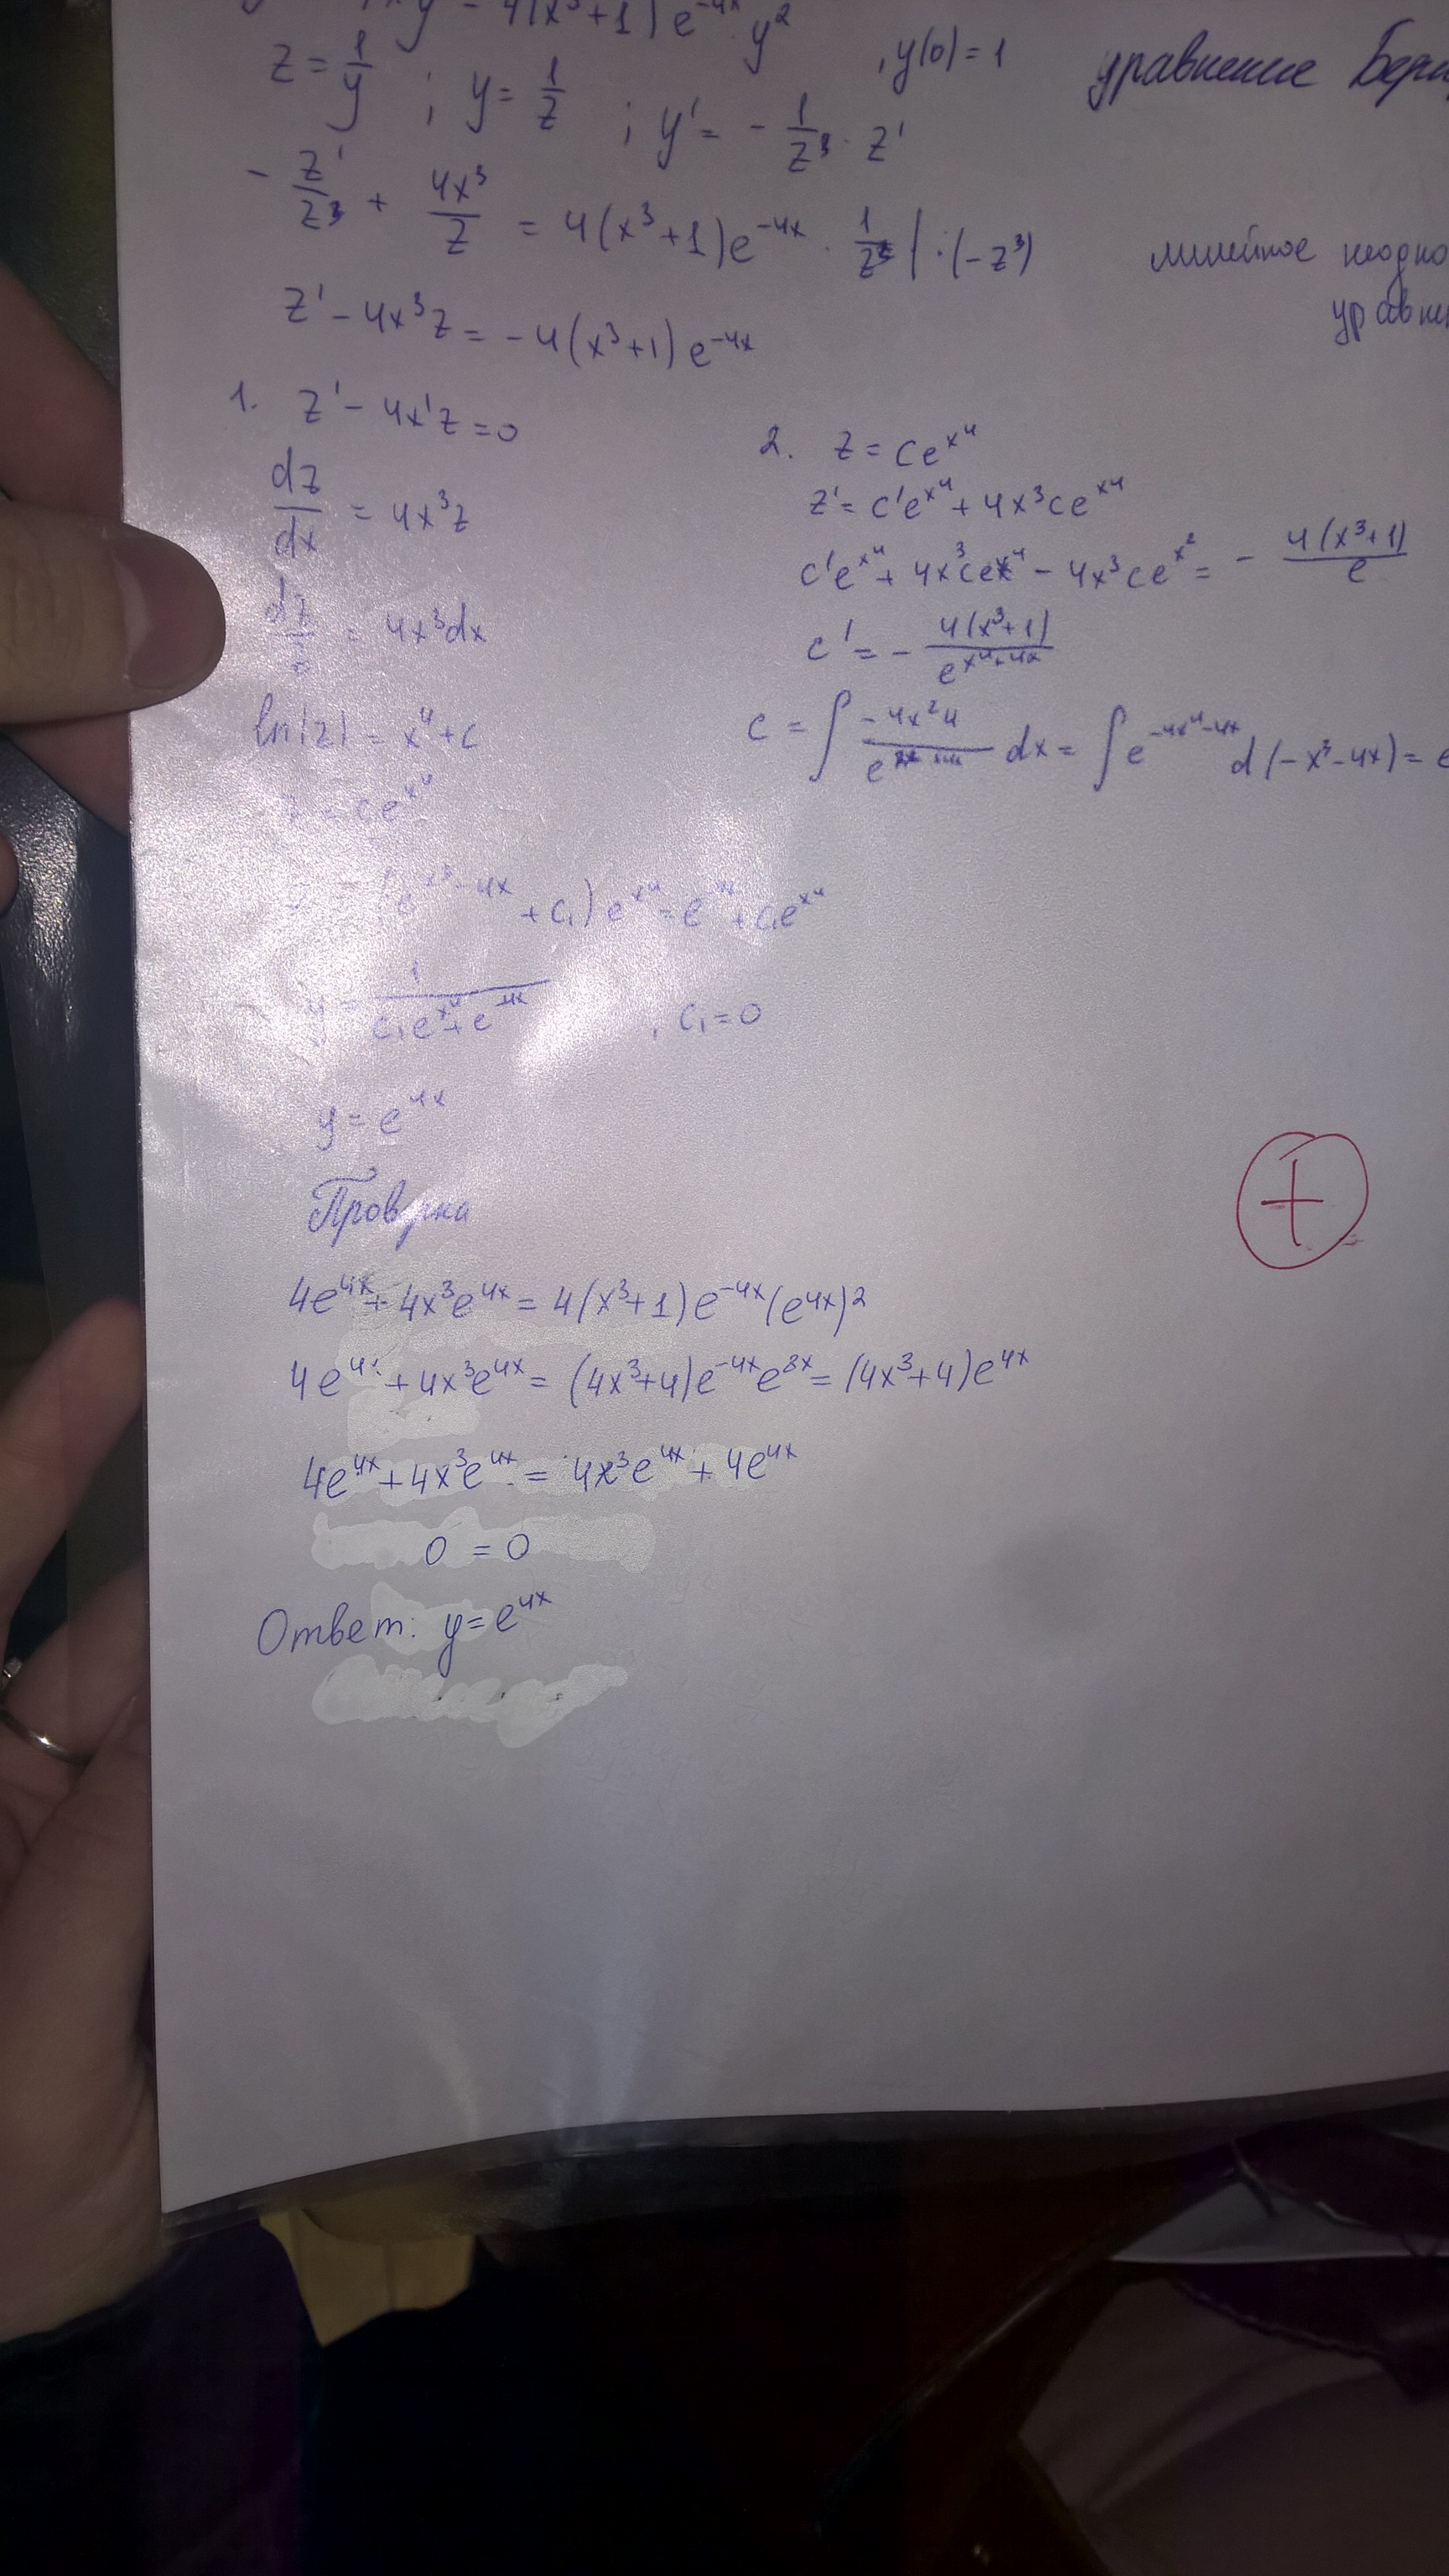 y = 4(x³+1)e⁻⁴ˣ y² , y(0)=1 уравнение Берн
z = 1/y ; y = 1/z ; y' = - 1/z³ · z'
- z'/z³ + 4x³/z = 4(x³+1)e⁻⁴ˣ · 1/z² | ·(-z³) линейное неодно
z' - 4x³z = -4(x³+1)e⁻⁴ˣ уравне
1. z' - 4x'z = 0
dz/dx = 4x³z
= 4x³dx
ln|z| = x⁴+c
z = ce^(x⁴)
2. z = ce^(x⁴)
z' = c'e^(x⁴) + 4x³ce^(x⁴)
c'e^(x⁴) + 4x³ce^(x⁴) - 4x³ce^(x²) = - 4(x³+1)/e
c' = - 4(x³+1)/e^(x⁴+4x)
c = ∫ -4x²4 / e dx = ∫ e^(-4x⁴-4x) d(-x³-4x) = e
+c₁) e^(x⁴) = e + c₁e^(x⁴)
y = 1/(c₁e^(x⁴)+e^(-4x)) , c₁=0
y = e⁴ˣ
Проверка
4e⁴ˣ + 4x³e⁴ˣ = 4(x³+1)e⁻⁴ˣ(e⁴ˣ)²
4e⁴ˣ + 4x³e⁴ˣ = (4x³+4)e⁻⁴ˣe⁸ˣ = (4x³+4)e⁴ˣ
4e⁴ˣ + 4x³e⁴ˣ = 4x³e⁴ˣ + 4e⁴ˣ
0 = 0
Ответ: y = e⁴ˣ
+